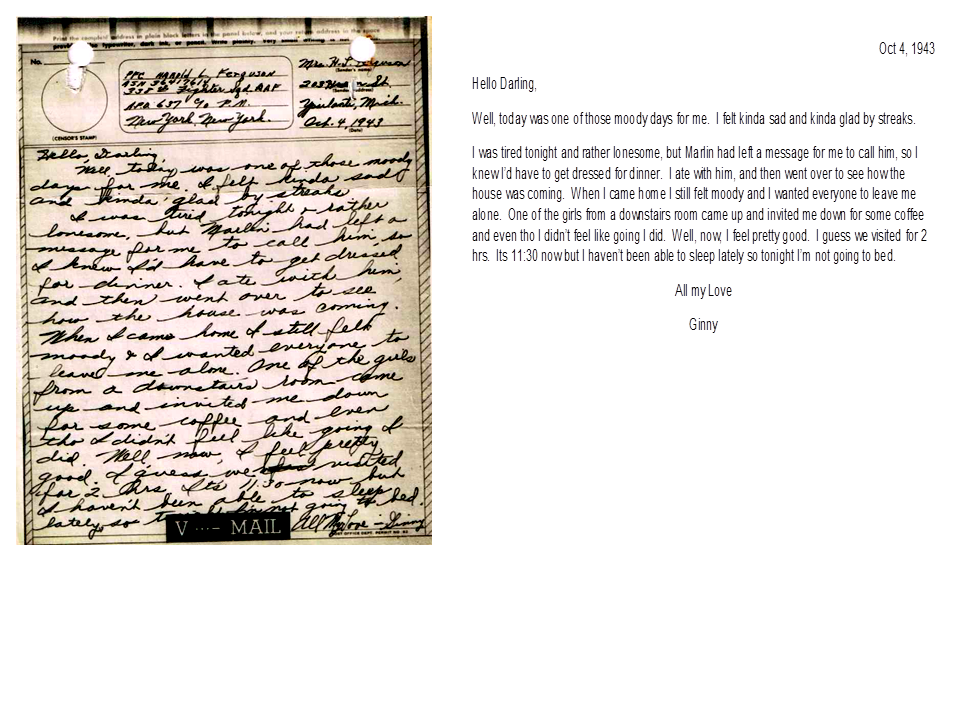 Print the complete address in plain block letters in the panel below, and your return address in the space
No.
(CENSOR'S STAMP)
PFC Harold L. Ferguson
338th Fighter Sqd. AAF
APO 637 c/o P.M.
New York, New York.
Mrs. H. L. Ferguson
(Sender's name)
Ypsilanti, Mich.
Oct. 4, 1943
(Date)
Hello, Darling,
Well, today was one of those moody
days for me. I felt kinda sad
and kinda glad by streaks
I was tired tonight & rather
lonesome, but Marlin had left a
message for me to call him, so
I knew I'd have to get dressed
for dinner. I ate with him,
and then went over to see
how the house was coming.
When I came home I still felt
moody & I wanted everyone to
leave me alone. One of the girls
from a downstairs room came
up and invited me down
for some coffee and even
tho I didn't feel like going I
did. Well now, I feel pretty
good. I guess we visited
for 2 hrs. Its 11:30 now but
I haven't been able to sleep
lately, so going to bed.
All My Love - Ginny
V ···– MAIL
Oct 4, 1943
Hello Darling,
Well, today was one of those moody days for me. I felt kinda sad and kinda glad by streaks.
I was tired tonight and rather lonesome, but Marlin had left a message for me to call him, so I
knew I'd have to get dressed for dinner. I ate with him, and then went over to see how the
house was coming. When I came home I still felt moody and I wanted everyone to leave me
alone. One of the girls from a downstairs room came up and invited me down for some coffee
and even tho I didn't feel like going I did. Well, now, I feel pretty good. I guess we visited for 2
hrs. Its 11:30 now but I haven't been able to sleep lately so tonight I'm not going to bed.
All my Love
Ginny